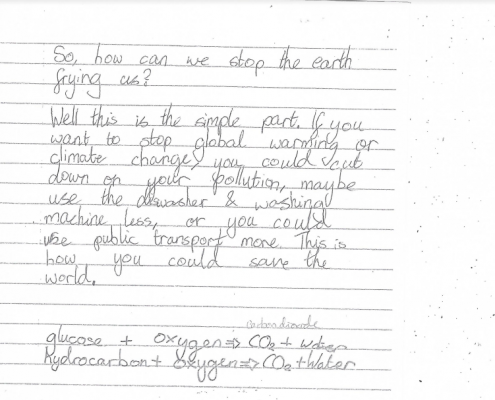 So, how can we stop the earth
frying us?
Well this is the simple part. If you
want to stop global warming or
climate change, you could cut
down on your pollution, maybe
use the diswasher & washing
machine less, or you could
use public transport more. This is
how you could save the
world.
carbondioxide
glucose + oxygen => CO2 + water
Hydrocarbon + Oxygen => CO2 + Water